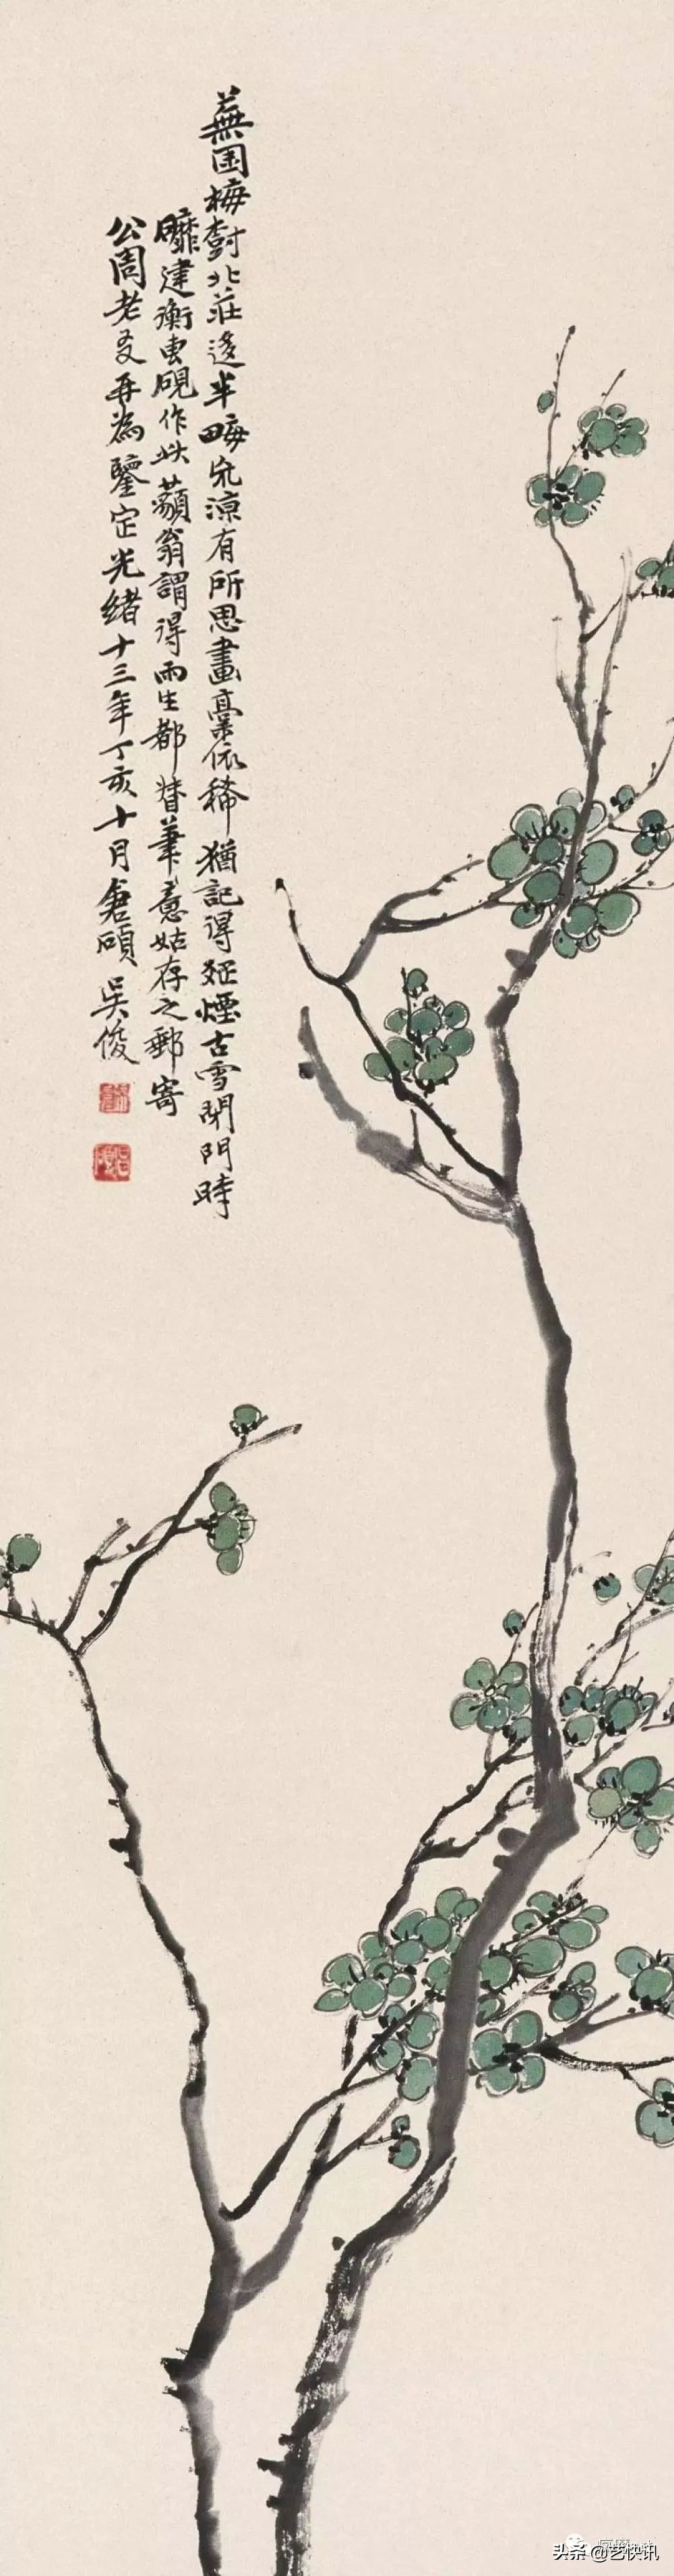 蕪園梅樹北莊迻半畮荒涼有所思畫稾依稀猶記得㷼煙古雪閉門時
建衡曹硯作此蘋翁謂得雨生都督筆意姑存之郵寄
公周老友再為鑒定光緒十三年丁亥十月倉碩吳俊
头条 @艺快讯